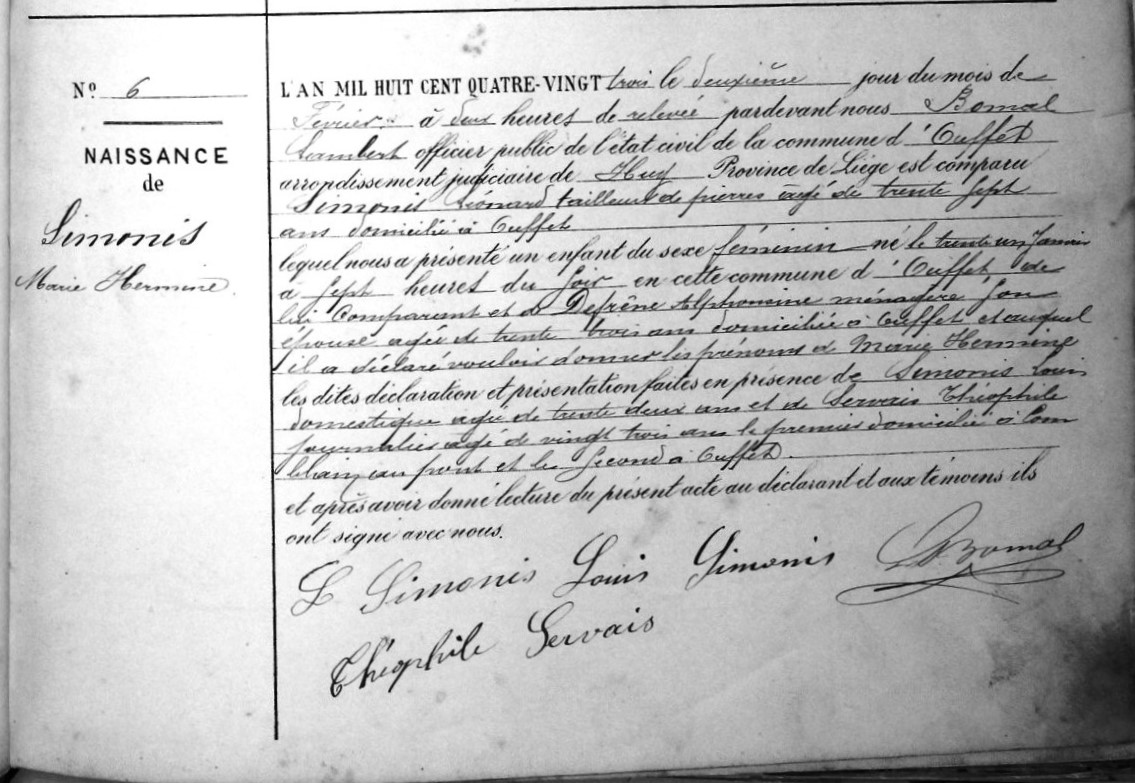 Nº 6
NAISSANCE
de
Simonis
Marie Hermine.
L'AN MIL HUIT CENT QUATRE-VINGT trois le deuxième jour du mois de
Février à deux heures de relevée pardevant nous Bomal
Lambert officier public de l'état civil de la commune d'Ouffet
arrondissement judiciaire de Huy Province de Liége est comparu
Simonis Leonard tailleur de pierres agé de trente sept
ans domicilié à Ouffet
lequel nous a présenté un enfant du sexe féminin né le trente un Janvier
à sept heures du soir en cette commune d'Ouffet de
lui Comparant et de Defrêne Alphonsine ménagère son
épouse agée de trente trois ans domiciliée à Ouffet et auquel
il a déclaré vouloir donner les prénoms de Marie Hermine
les dites déclaration et présentation faites en présence de Simonis Louis
domestique agé de trente deux ans et de Servais Théophile
journalier agé de vingt trois ans le premier domicilié à Com
blain au pont et le second à Ouffet.
et après avoir donné lecture du présent acte au déclarant et aux témoins ils
ont signé avec nous.
L Simonis Louis Simonis L Bomal
Théophile Servais